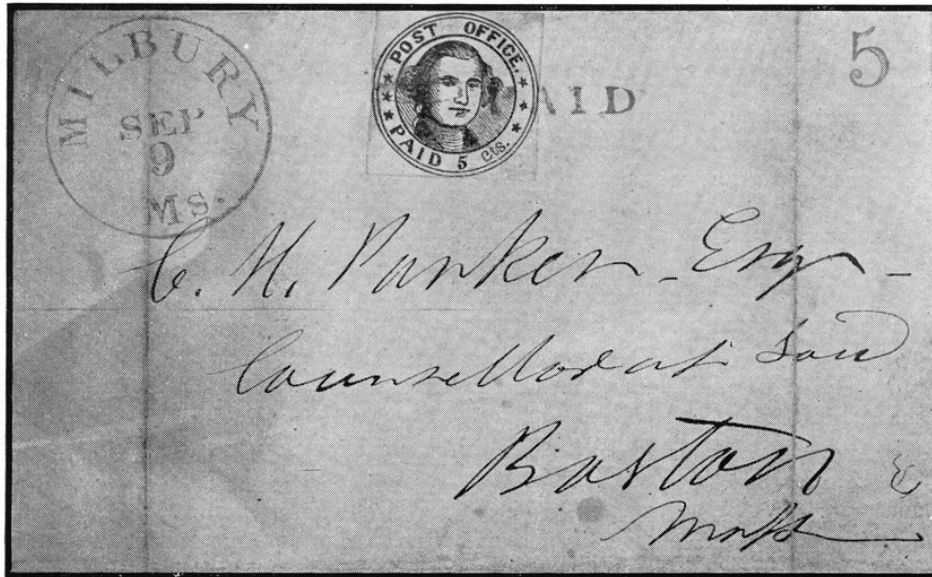 MILBURY
SEP
9
MS.
POST OFFICE.
PAID 5 cts.
PAID
5
C. H. Parker - Esqr -
Counsellor at Law
Boston
Mass